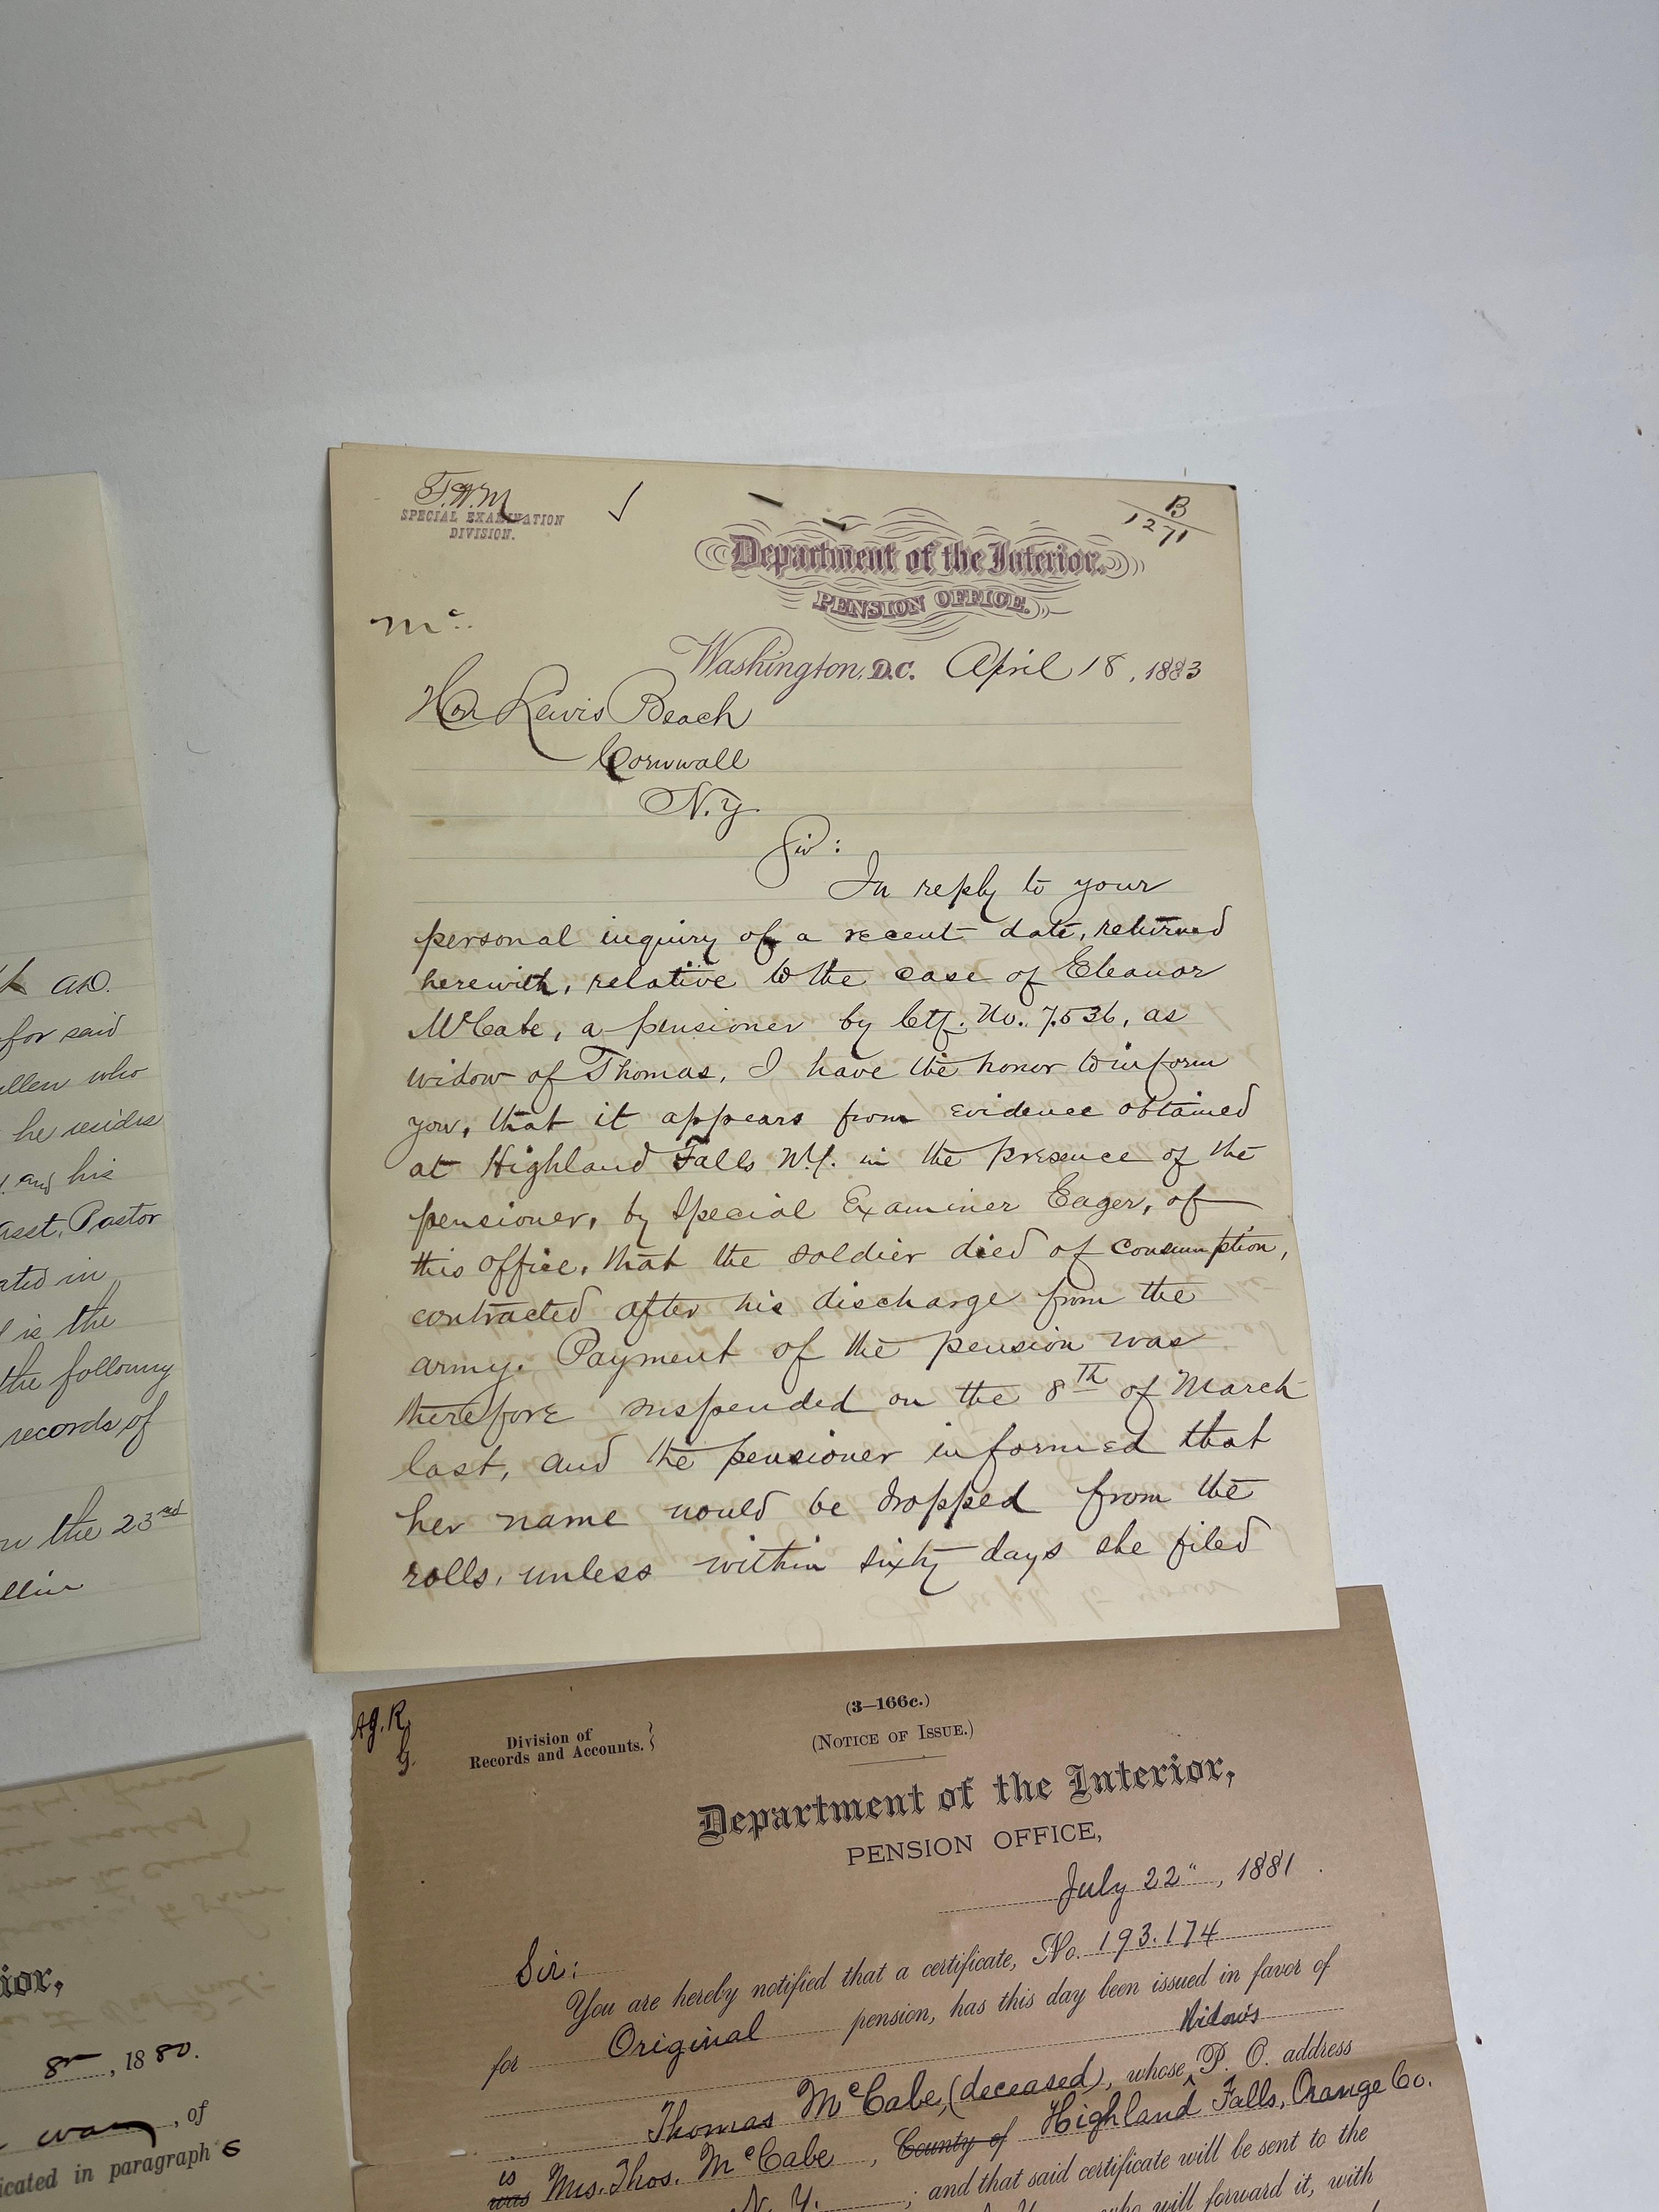 T.W.M
SPECIAL EXAMINATION
DIVISION.
B
1271
Department of the Interior.
PENSION OFFICE.
Mc.
Washington, D.C. April 18, 1883
Hon Lewis Beach
Cornwall
N.Y.
Sir:
In reply to your
personal inquiry of a recent date, returned
herewith, relative to the case of Eleanor
McCabe, a pensioner by Ctf. No. 7.536, as
widow of Thomas, I have the honor to inform
you, that it appears from evidence obtained
at Highland Falls N.Y. in the presence of the
pensioner, by Special Examiner Eager, of
this office, that the soldier died of consumption,
contracted after his discharge from the
army. Payment of the pension was
therefore suspended on the 8th of March
last, and the pensioner informed that
her name would be dropped from the
rolls, unless within sixty days she filed
AD.
for said
who
he resides
and his
Asst. Pastor
in
is the
the following
records of
the 23rd
(3—166c.)
(NOTICE OF ISSUE.)
Division of
Records and Accounts.
Department of the Interior,
PENSION OFFICE,
July 22", 1881.
Sir:
You are hereby notified that a certificate, No. 193.174
for Original pension, has this day been issued in favor of
Widow's
Thomas McCabe, (deceased), whose P. O. address
is
was Mrs. Thos. McCabe, County of Highland Falls, Orange Co.
N.Y. ; and that said certificate will be sent to the
who will forward it, with
ior,
8, 1880.
, of
icated in paragraph 6